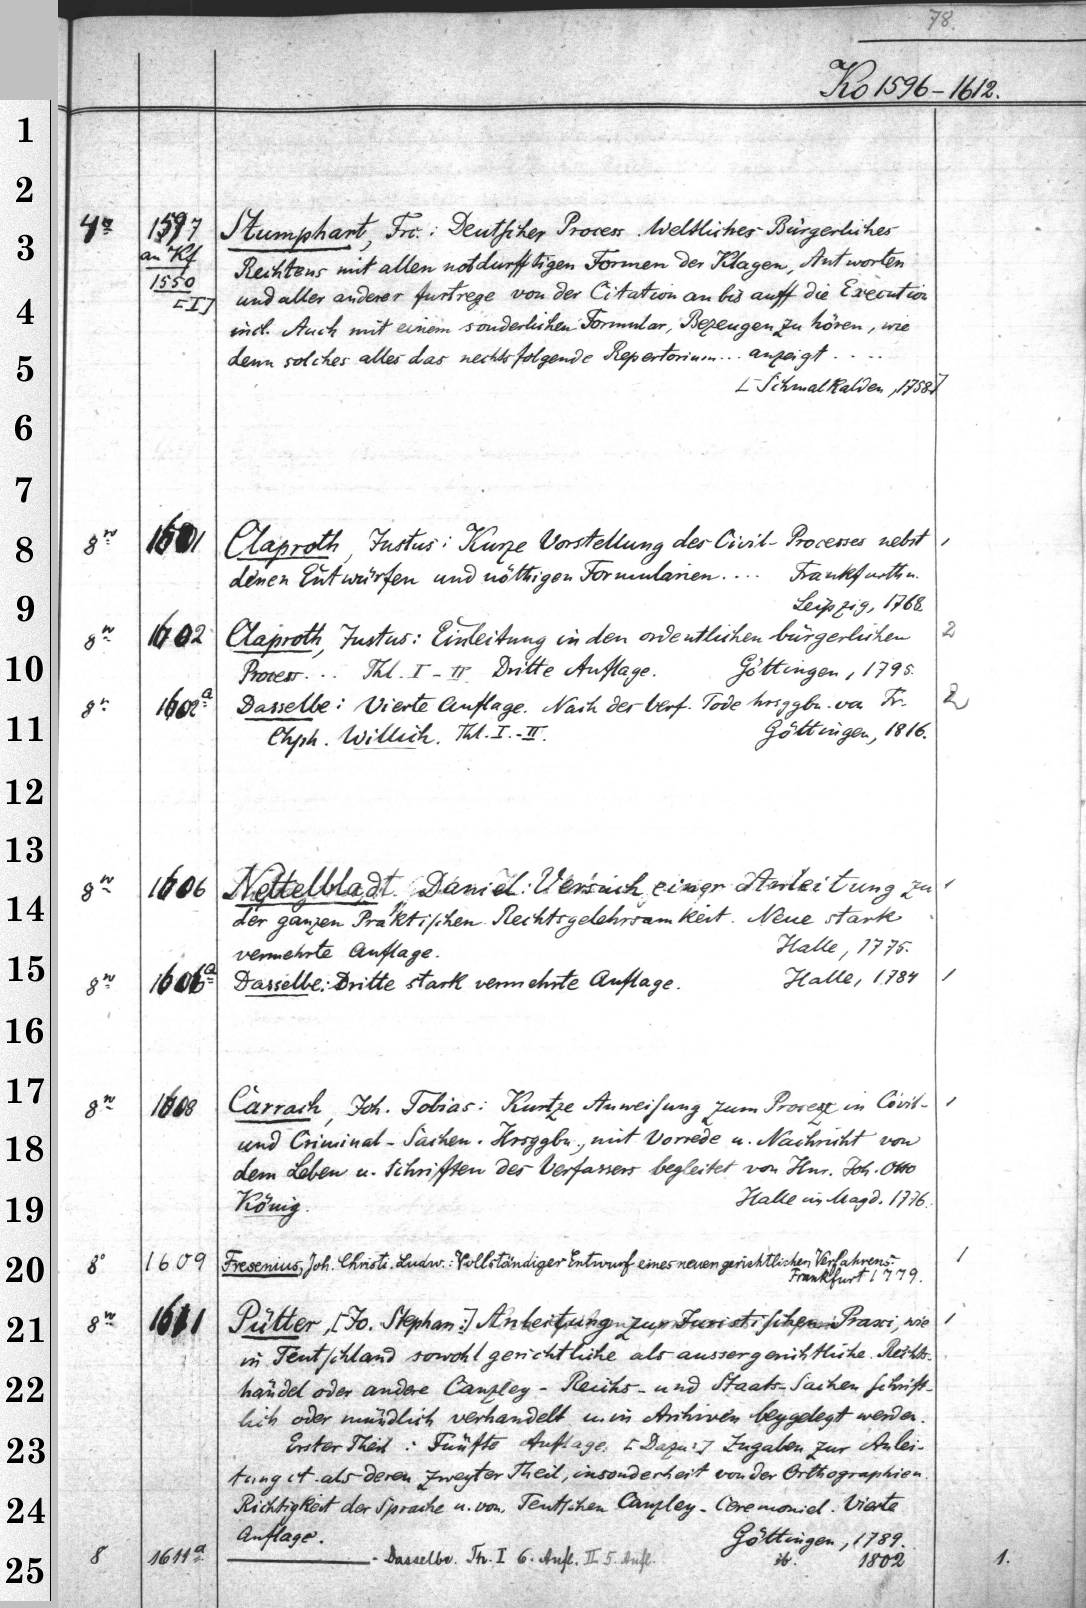 78.
Ko 1596-1612.
1
2
3
4
5
6
7
8
9
10
11
12
13
14
15
16
17
18
19
20
21
22
23
24
25
4º 1597 Stumphart, Fr.: Deutscher Process Weltliches Bürgerliches
an Kf Rechtens mit allen notdurfftigen Formen der Klagen, Antworten
1550 und aller anderer furtrege von der Citation an bis auff die Execution
[I] incl. Auch mit einem sonderlichen Formular, Bezeugen zu hören, wie
denn solches alles das nechtsfolgende Repertorium... anzeigt ....
[Schmalkalden, 1758]
8º 1601 Claproth, Justus: Kurze Vorstellung des Civil-Processes nebst 1
denen Entwürfen und nöthigen Formularien.... Frankfurth u.
Leipzig, 1768
8º 1602 Claproth, Justus: Einleitung in den ordentlichen bürgerlichen 2
Process... Thl. I-II Dritte Auflage. Göttingen, 1795.
8º 1602a Dasselbe: Vierte Auflage. Nach des Verf. Tode hrsggbn. von Fr. 2
Chph. Willich. Thl. I.-II. Göttingen, 1816.
8º 1606 Nettelbladt, Daniel: Versuch einer Anleitung zu 1
der ganzen Praktischen Rechtsgelehrsamkeit. Neue stark
vermehrte Auflage. Halle, 1775.
8º 1606a Dasselbe: Dritte stark vermehrte Auflage. Halle, 1784 1
8º 1608 Carrach, Joh. Tobias: Kurtze Anweisung zum Process in Civil- 1
und Criminal-Sachen. Hrsggbn., mit Vorrede u. Nachricht von
dem Leben u. Schriften des Verfassers begleitet von Hnr. Joh. Otto
König. Halle im Magd. 1776.
8º 1609 Fresenius, Joh. Christi. Ludw.: Vollständiger Entwurf eines neuen gerichtlichen Verfahrens. 1
Frankfurt 1779.
8º 1611 Pütter, [Jo. Stephan:] Anleitung zur Juristischen Praxi, wie 1
in Teutschland sowohl gerichtliche als aussergerichtliche Rechts-
händel oder andere Canzley-Reichs- und Staats-Sachen schrift-
lich oder mündlich verhandelt u. in Archiven beygelegt werden.
Erster Theil: Fünfte Auflage. [Dazu:] Zugaben zur Anlei-
tung als deren zweyter Theil, insonderheit von der Orthographien
Richtigkeit der Sprache u. von Teutschen Canzley-Ceremoniel. Vierte
Auflage. Göttingen, 1789.
8 1611a - Dasselbe. Th. I 6. Aufl. II 5. Aufl. ib. 1802 1.